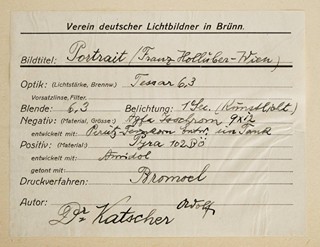 Verein deutscher Lichtbildner in Brünn.
Bildtitel: Portrait (Franz Hollüber-Wien)
Optik: (Lichtstärke, Brennw.) Tessar 6,3
Vorsatzlinse, Filter:
Blende: 6,3 Belichtung: 1 Sec. (Kunstlicht)
Negativ: (Material, Grösse:) Agfa Isochrom 9x12
entwickelt mit: Perutz Feinkorn Entw. im Tank
Positiv: (Material:) Tyra 102
entwickelt mit: Amidol
getont mit:
Druckverfahren: Bromoel
Autor: Dr. Katscher Adolf